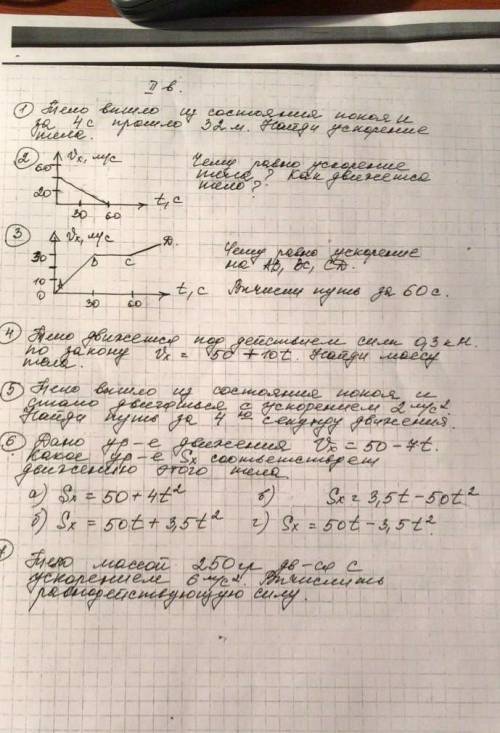 II в.
① Тело вышло из состояния покоя и
за 4 с прошло 32 м. Найди ускорение
тела.
② Vx, м/с
60
20
30 60 t, с
Чему равно ускорение
тела? Как движется
тело?
③ Vx, м/с
30
10
0
A B C D
30 60 t, с
Чему равно ускорение
на AB, BC, CD.
Вычисли путь за 60 с.
④ Тело движется под действием силы 0,3 кН.
по закону Vx = 50 + 10t. Найди массу
тела.
⑤ Тело вышло из состояния покоя и
стало двигаться с ускорением 2 м/с².
Найди путь за 4ю секунду движения.
⑥ Дано ур-е движения Vx = 50 - 7t.
Какое ур-е Sx соответствует
движению этого тела
а) Sx = 50 + 4t² б) Sx = 3,5t - 50t²
б) Sx = 50t + 3,5t² г) Sx = 50t - 3,5t²
Тело массой 250 гр дв-ся с
ускорением 6 м/с². Вычислить
равнодействующую силу.